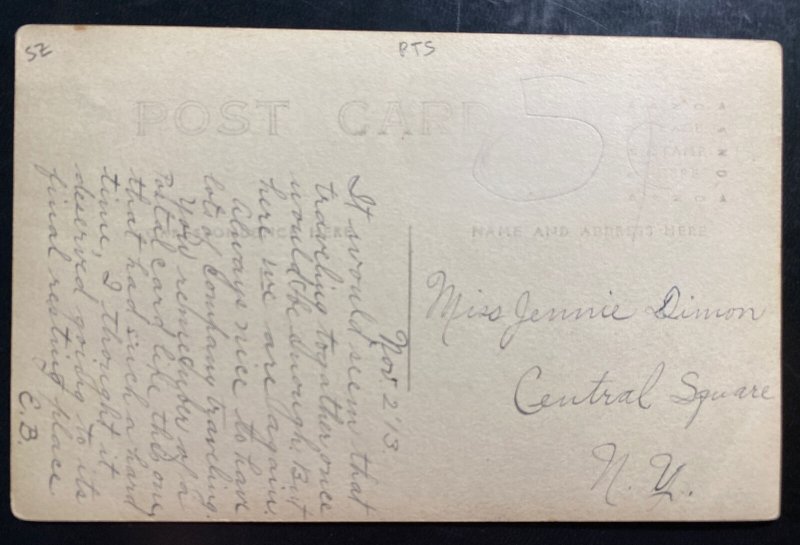 SZ
PTS
POST CARD
5¢
CORRESPONDENCE HERE
NAME AND ADDRESS HERE
Nov. 2 '13.
It would seem that
traveling togather once
would be enough. But
here we are again.
Always nice to have
lots of Company traveling.
Your remember of a
Postal card like this one
that had such a hard
time, I thought it
deserved going to its
final resting place
E. B.
Miss Jennie Dimon
Central Square
N. Y.